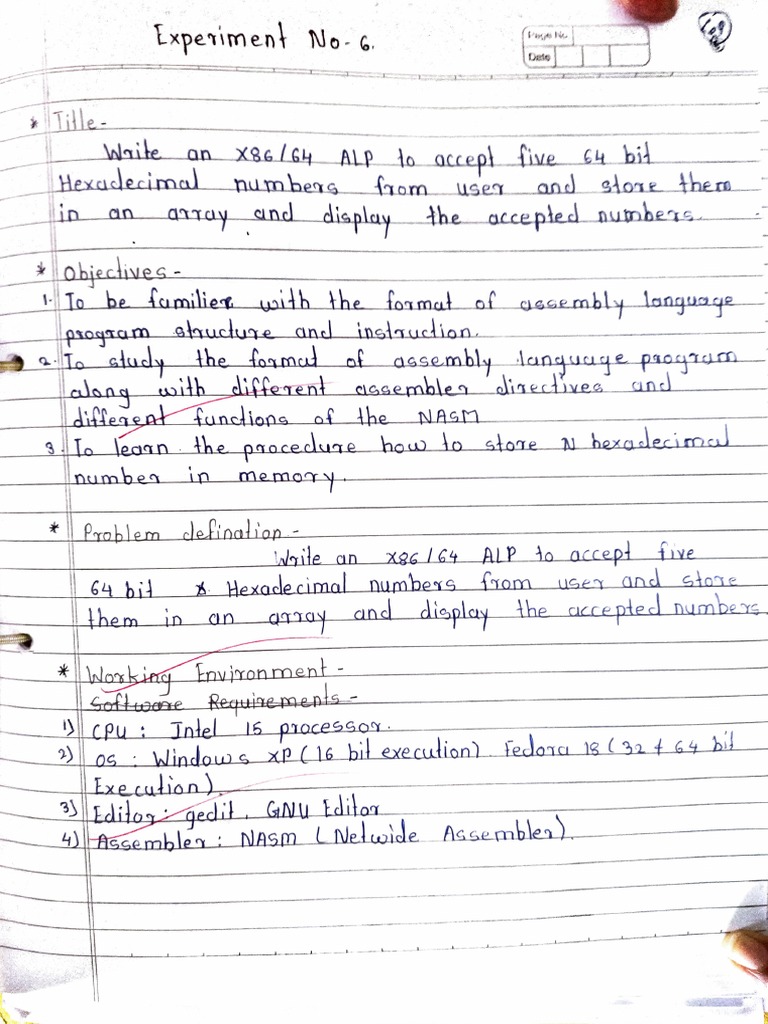 Experiment No-6.
Page No.
Date
* Title-
Write an X86/64 ALP to accept five 64 bit
Hexadecimal numbers from user and store them
in an array and display the accepted numbers.
* Objectives-
1. To be familier with the format of assembly language
program structure and instruction.
2. To study the format of assembly language program
along with different assembler directives and
different functions of the NASM
3. To learn the procedure how to store N hexadecimal
number in memory.
* Problem defination-
Write an X86/64 ALP to accept five
64 bit Hexadecimal numbers from user and store
them in an array and display the accepted numbers
* Working Environment-
Software Requirements-
1) CPU: Intel I5 processor.
2) OS: Windows XP (16 bit execution) Fedora 18 (32 & 64 bit
Execution)
3) Editor: gedit, GNU Editor
4) Assembler: NASM (Netwide Assembler).